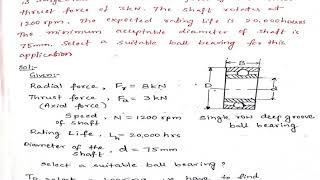 thrust force of 3kN. The shaft rotates at
1200 rpm. The expected rating life is 20,000 hours
The minimum acceptable diameter of shaft is
75mm. Select a suitable ball bearing for this
application.
Sol:-
Given:-
Radial force, Fr = 8kN
Thrust force, Fa = 3 kN
(Axial force)
Speed of shaft, N = 1200 rpm
Rating Life, Lh = 20,000 hrs
Diameter of the shaft, d = 75mm
B
D
d
Single row deep groove
ball bearing
Select a suitable ball bearing?
to find